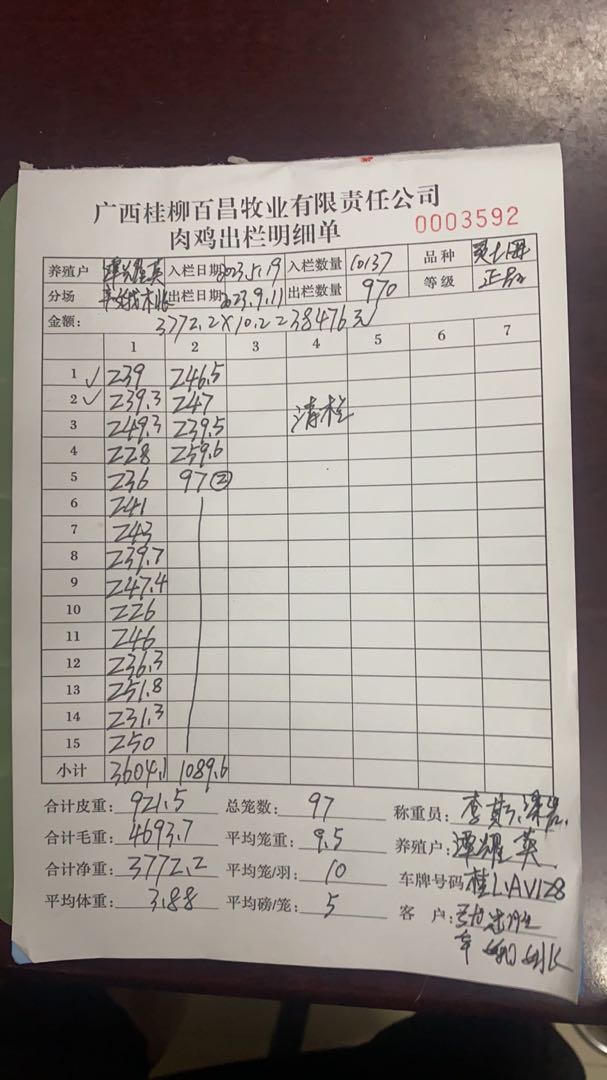 广西桂柳百昌牧业有限责任公司
肉鸡出栏明细单 0003592
养殖户 谭耀英 入栏日期 2023.5.19 入栏数量 10137 品种
分场 出栏日期 2023.9.11 出栏数量 970 等级 正品
金额: 3772.2×10.2=38476元
1 2 3 4 5 6 7
1 ✓ 239 246.5
2 ✓ 239.3 247
3 249.3 239.5 清栏
4 228 259.6
5 236 97②
6 241
7 243
8 239.7
9 247.4
10 226
11 246
12 236.3
13 251.8
14 231.3
15 250
小计 3604.1 1089.6
合计皮重: 921.5 总笼数: 97 称重员:
合计毛重: 4693.7 平均笼重: 9.5 养殖户: 谭耀英
合计净重: 3772.2 平均笼/羽: 10 车牌号码 桂L·AV128
平均体重: 3.88 平均磅/笼: 5 客 户: